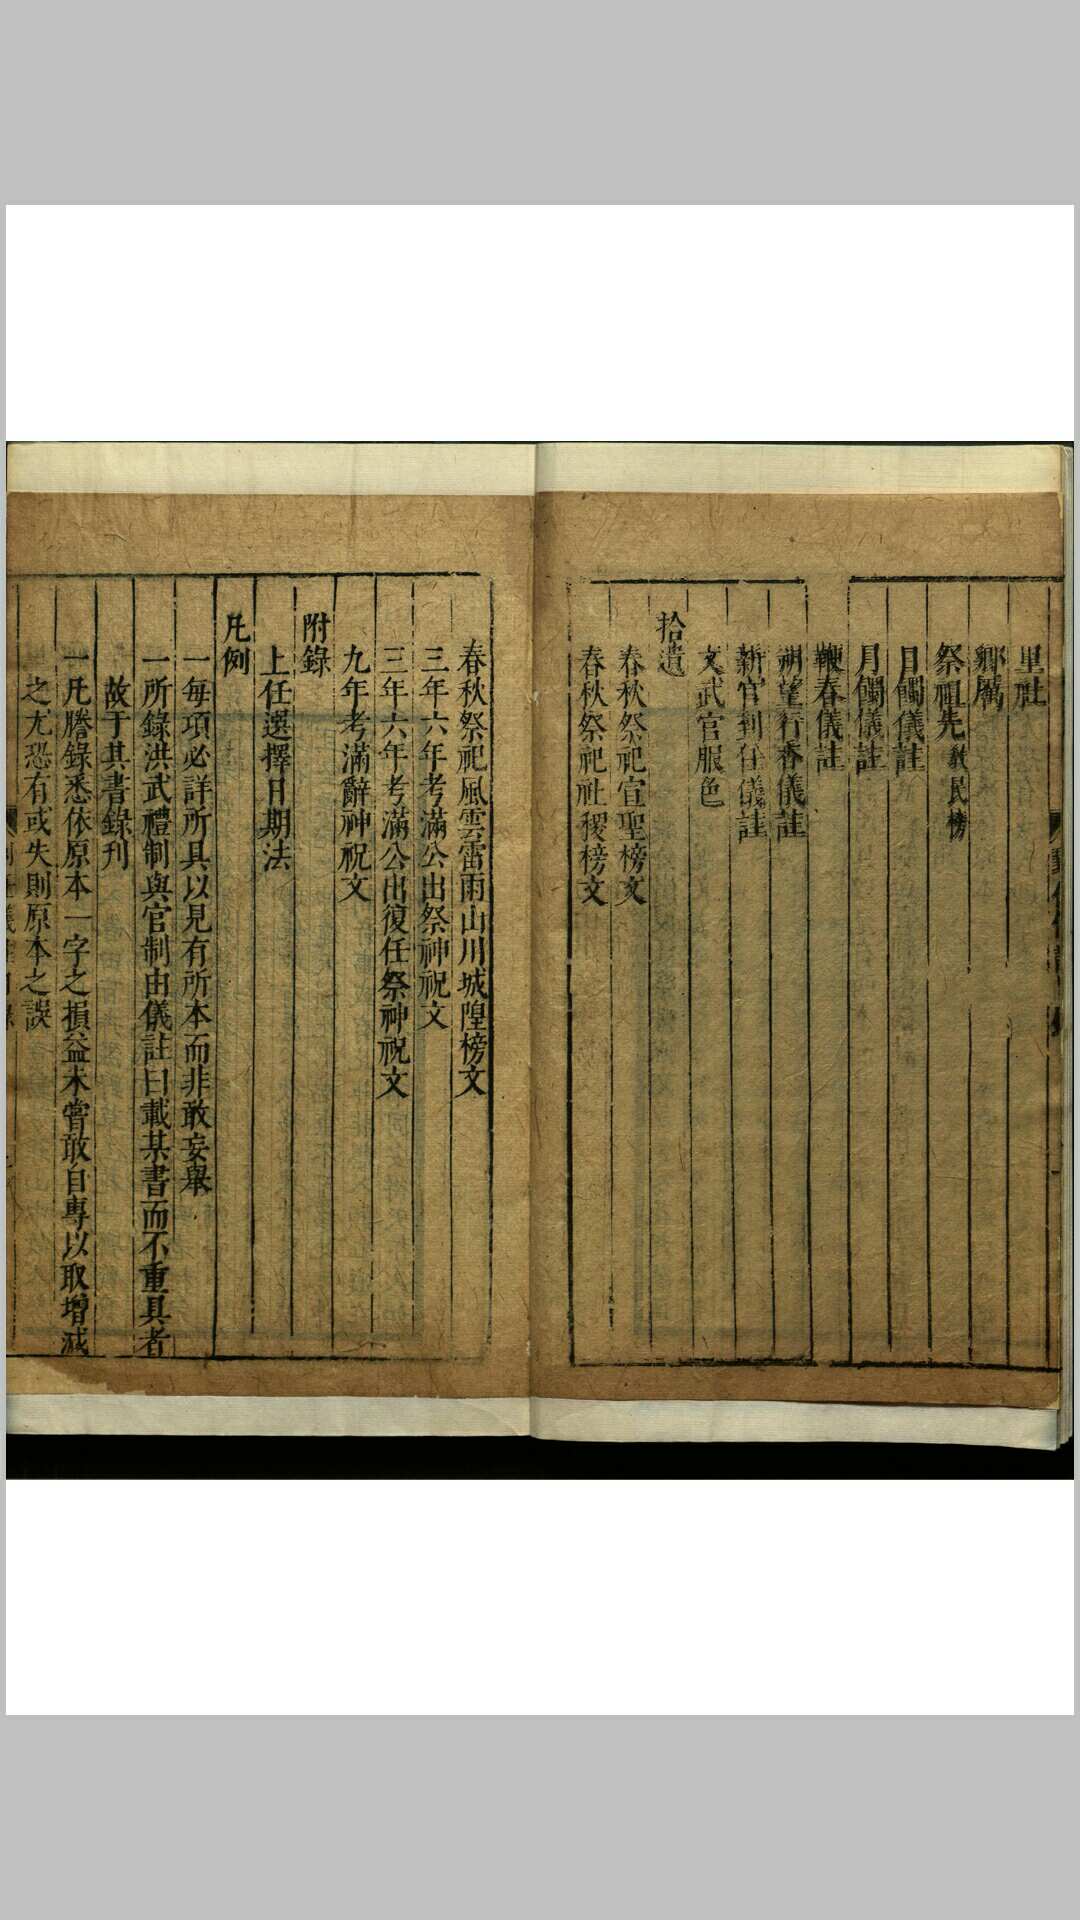 里社
鄉厲
祭祖先 教民榜
日躅儀註
月躅儀註
鞭春儀註
朔望行香儀註
新官到任儀註
文武官服色
拾遺
春秋祭祀宣聖榜文
春秋祭祀社稷榜文
春秋祭祀風雲雷雨山川城隍榜文
三年六年考滿公出祭神祝文
三年六年考滿公出復任祭神祝文
九年考滿辭神祝文
附錄
上任選擇日期法
凡例
一每項必詳所具以見有所本而非敢妄舉
一所錄洪武禮制與官制由儀註曰載某書而不重具者
故于其書錄刋
一凡謄錄悉依原本一字之損益未嘗敢自專以取增減
之尤恐有或失則原本之誤